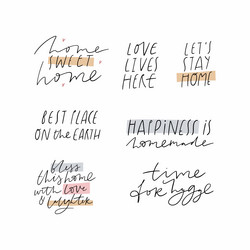 home
SWEET
home
LOVE
LIVES
HERE
LET'S
STAY
HOME
BEST PLACE
ON the EARTH
HAPPINESS is
homemade
bless
this home
with love
& laughter
time
for hygge